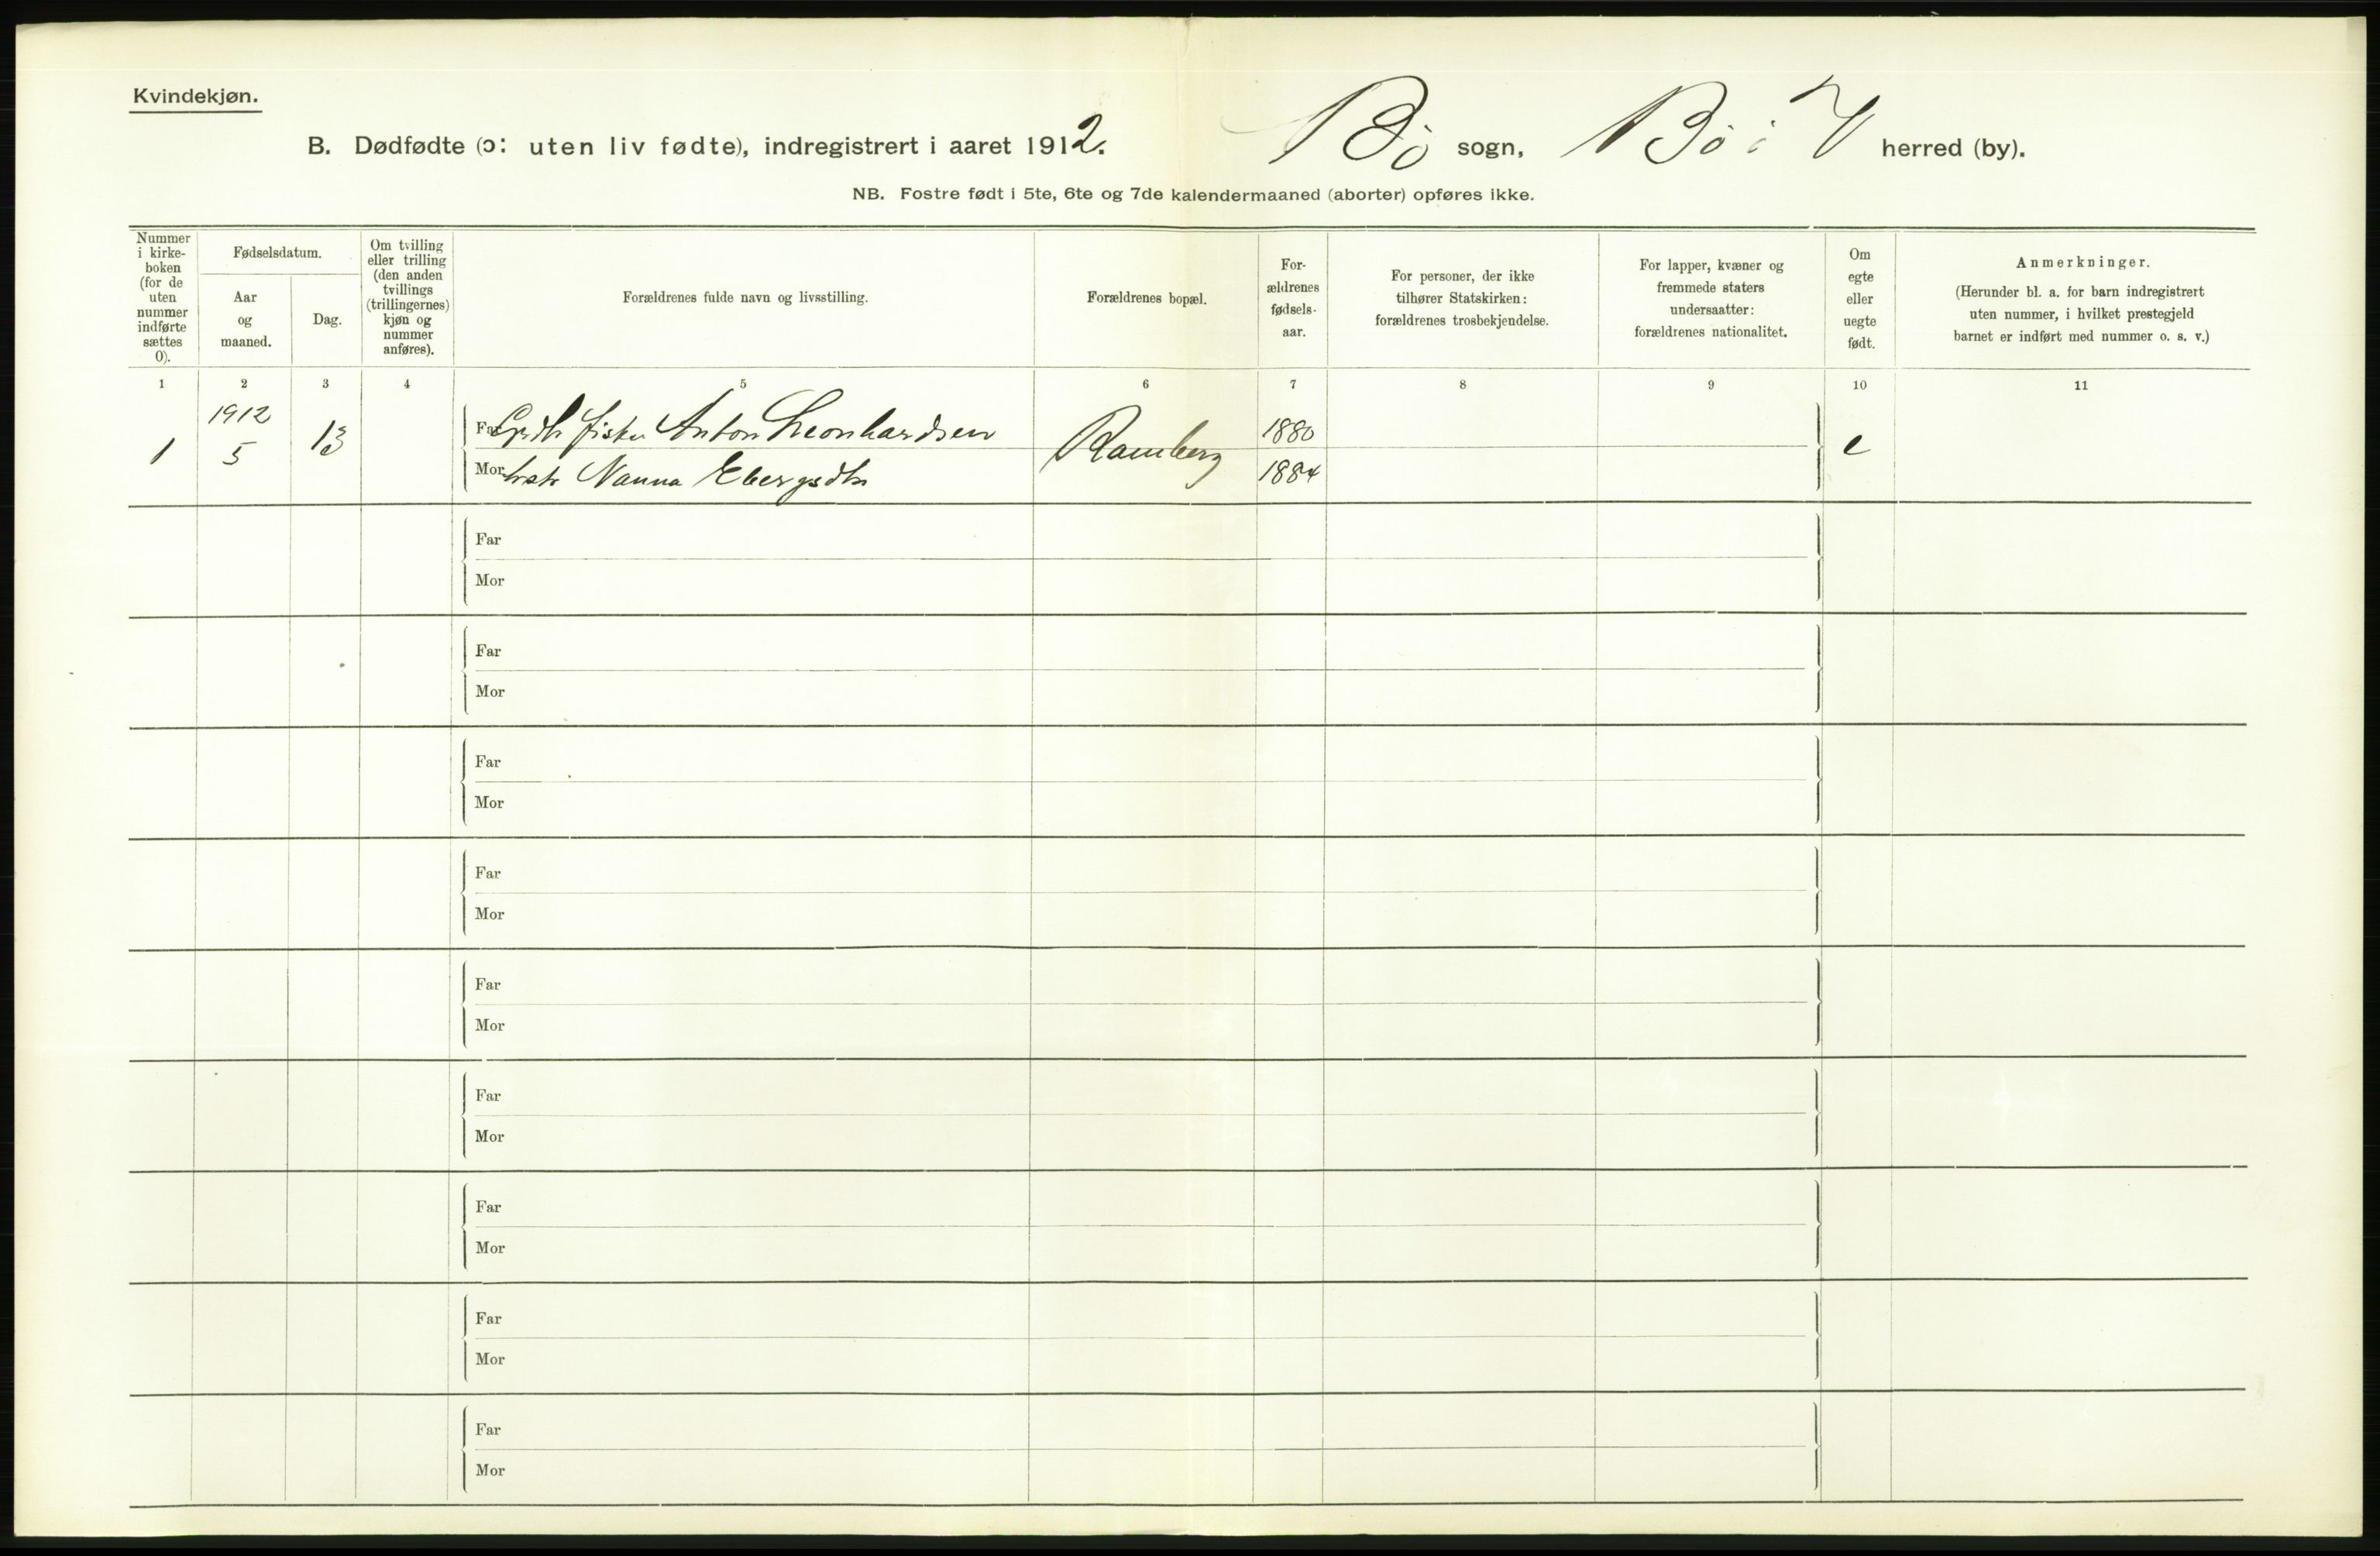 Kvindekjøn.
B. Dødfødte (ɔ: uten liv fødte), indregistrert i aaret 1912. Bö sogn, Bö i V herred (by).
NB. Fostre født i 5te, 6te og 7de kalendermaaned (aborter) opføres ikke.
Nummer i kirke-boken (for de uten nummer indførte sættes 0).
Fødselsdatum.
Aar og maaned.
Dag.
Om tvilling eller trilling (den anden tvillings (trillingernes) kjøn og nummer anføres).
Forældrenes fulde navn og livsstilling.
Forældrenes bopæl.
For-ældrenes fødsels-aar.
For personer, der ikke tilhører Statskirken: forældrenes trosbekjendelse.
For lapper, kvæner og fremmede staters undersaatter: forældrenes nationalitet.
Om egte eller uegte født.
Anmerkninger.
(Herunder bl. a. for barn indregistrert uten nummer, i hvilket prestegjeld barnet er indført med nummer o. s. v.)
1 2 3 4 5 6 7 8 9 10 11
1 1912 5 13 Far fisker Anton Leonhardsen Ramberg 1880 e
Mor Nanna 1884
Far
Mor
Far
Mor
Far
Mor
Far
Mor
Far
Mor
Far
Mor
Far
Mor
Far
Mor
Far
Mor